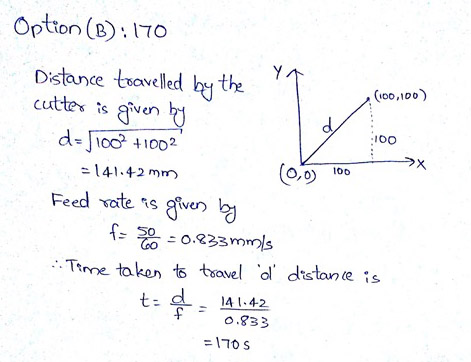 Option(B): 170
Distance travelled by the
cutter is given by
d = √100² + 100²
= 141.42 mm
Y
(100,100)
d
100
(0,0) 100 X
Feed rate is given by
f = 50/60 = 0.833 mm/s
∴ Time taken to travel 'd' distance is
t = d/f = 141.42/0.833
= 170 s